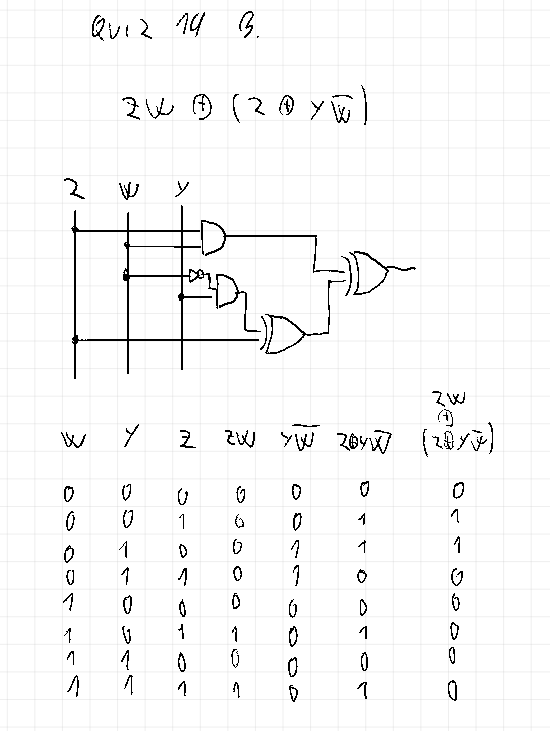 QUIZ 14 B.
ZW ⊕ (Z ⊕ Y W̅)
Z W Y
ZW
⊕
W Y Z ZW Y W̅ Z⊕Y W̅ (Z⊕Y W̅)
0 0 0 0 0 0 0
0 0 1 0 0 1 1
0 1 0 0 1 1 1
0 1 1 0 1 0 0
1 0 0 0 0 0 0
1 0 1 1 0 1 0
1 1 0 0 0 0 0
1 1 1 1 0 1 0